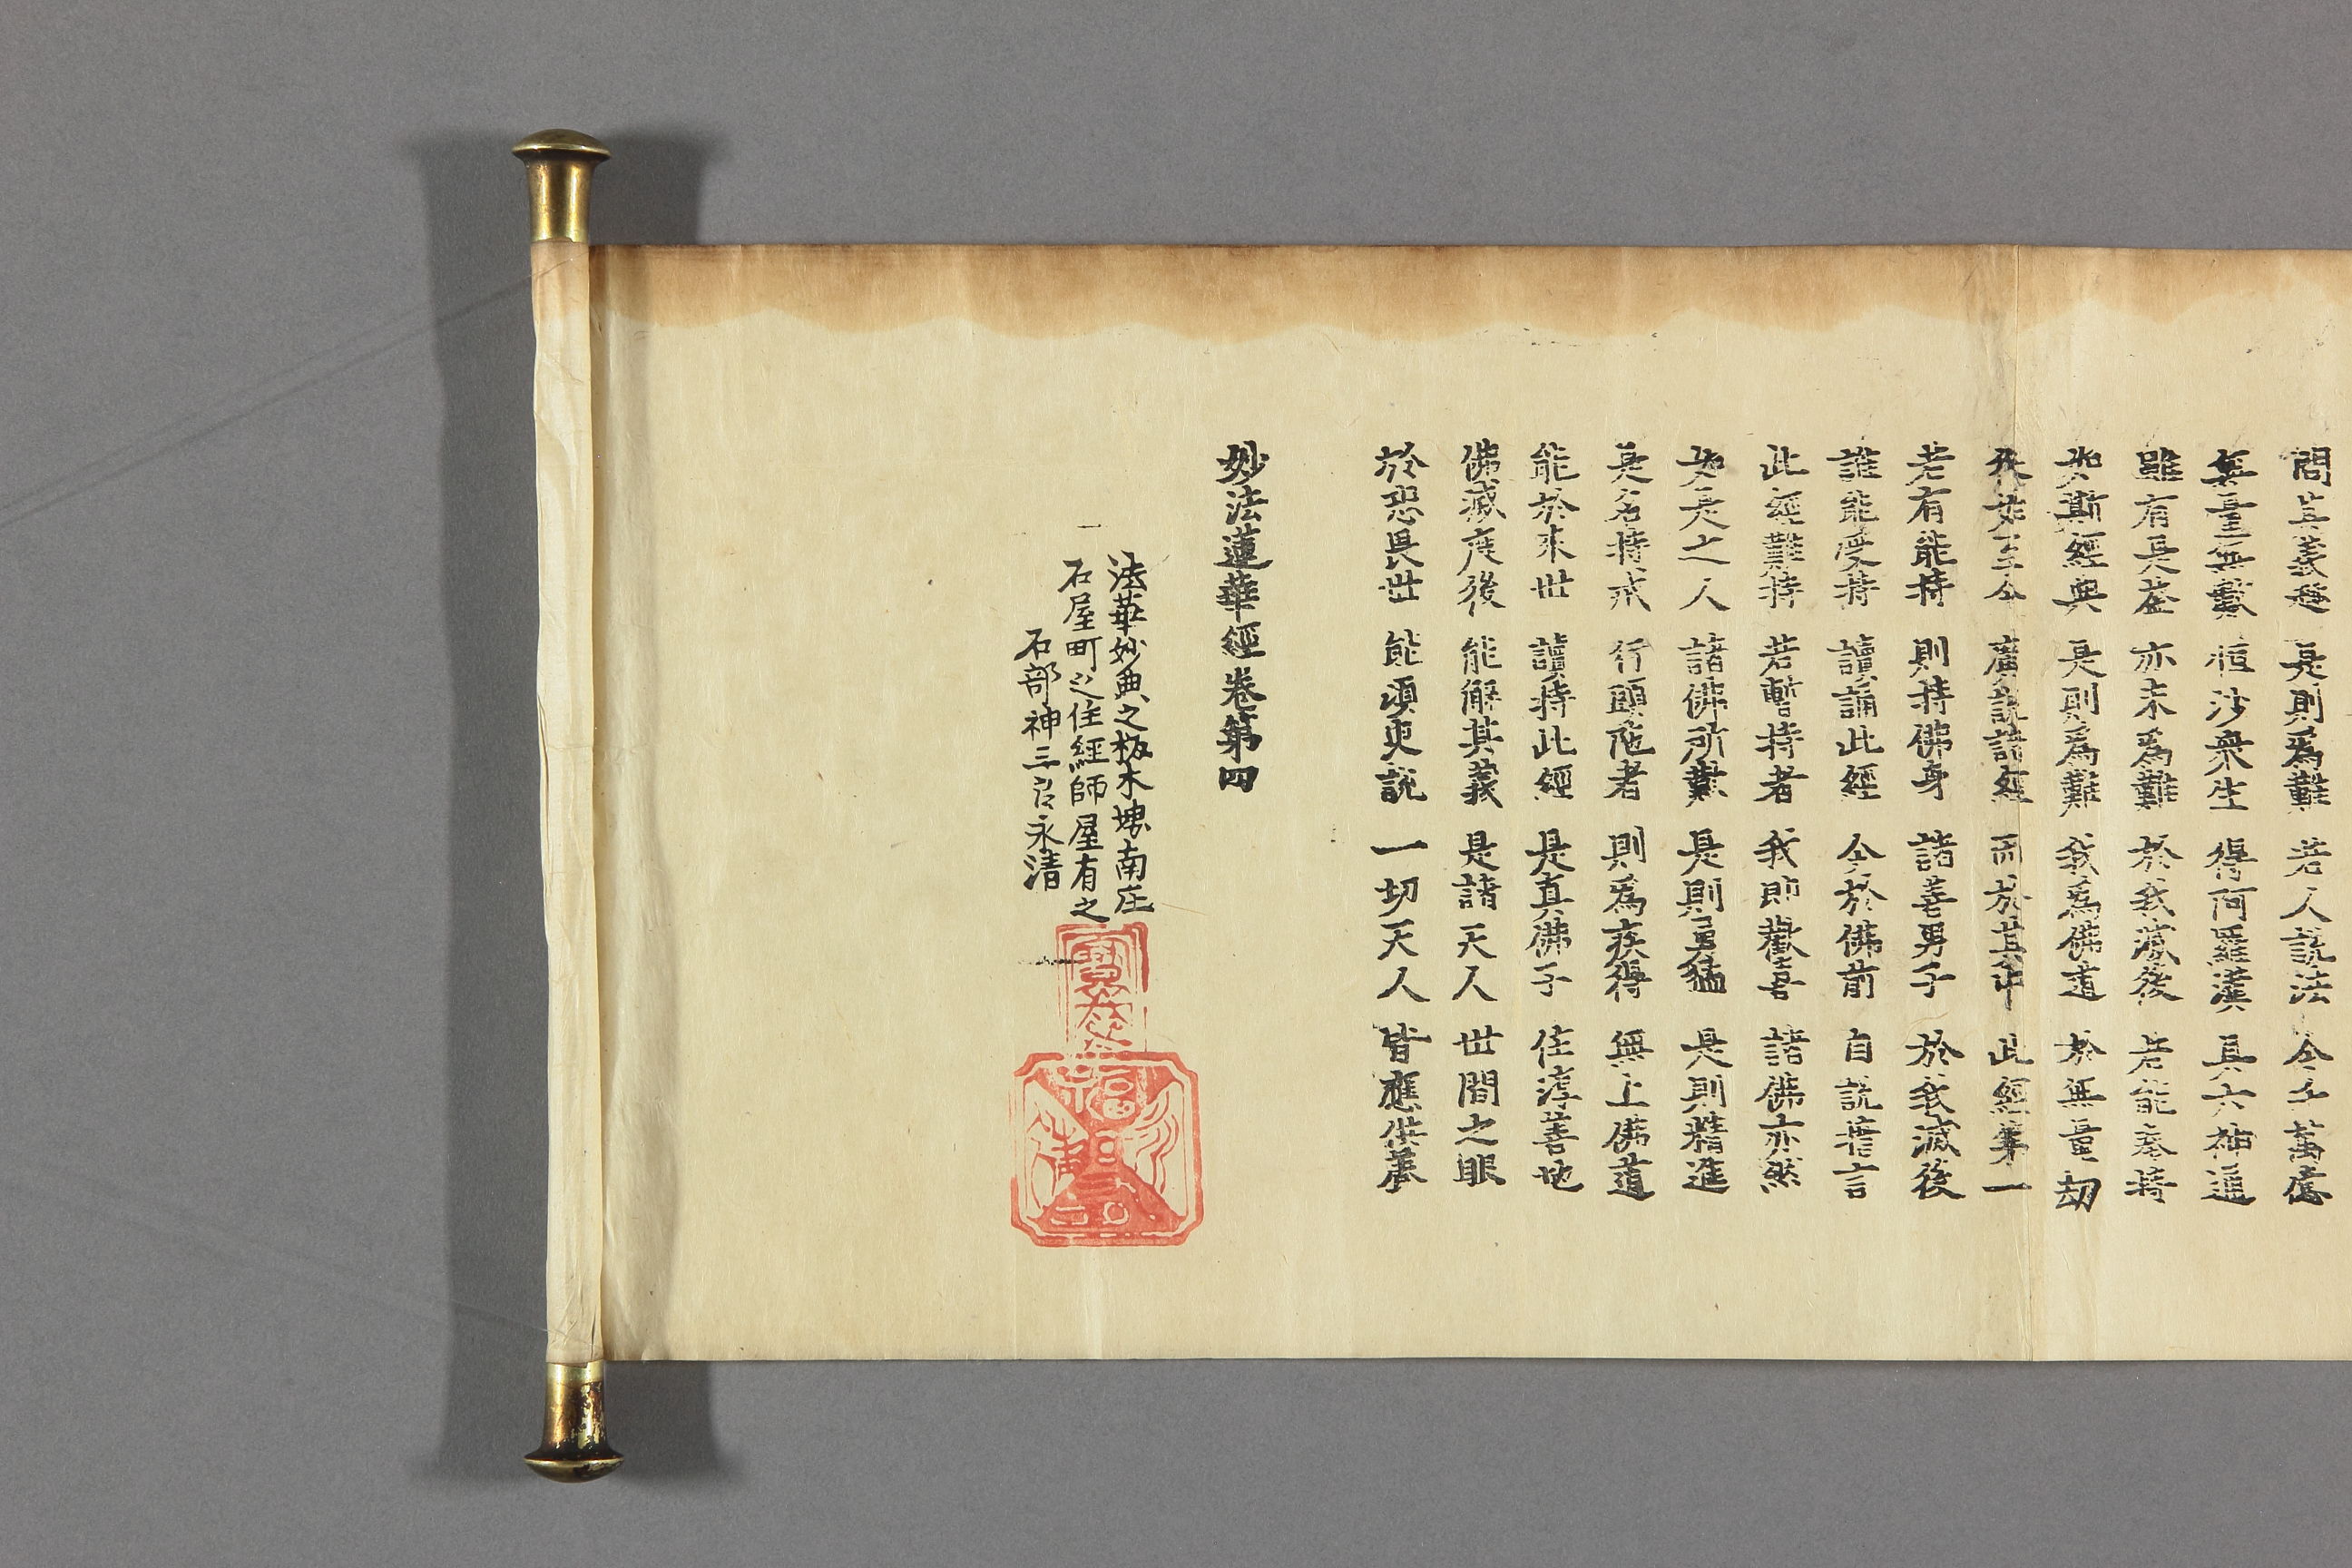 問其義趣 是則爲難 若人說法 令千萬億
無量無數 恒沙衆生 得阿羅漢 具六神通
雖有是益 亦未爲難 於我滅後 若能奉持
如斯經典 是則爲難 我爲佛道 於無量劫
從始至今 廣說諸經 而於其中 此經第一
若有能持 則持佛身 諸善男子 於我滅後
誰能受持 讀誦此經 今於佛前 自說誓言
此經難持 若暫持者 我即歡喜 諸佛亦然
如是之人 諸佛所歎 是則勇猛 是則精進
是名持戒 行頭陁者 則爲疾得 無上佛道
能於來世 讀持此經 是真佛子 住淳善地
佛滅度後 能解其義 是諸天人 世間之眼
於恐畏世 能須臾說 一切天人 皆應供養
妙法蓮華經卷第四
法華妙典之板木堺南庄
石屋町之住經師屋有之
石部神三郎永清